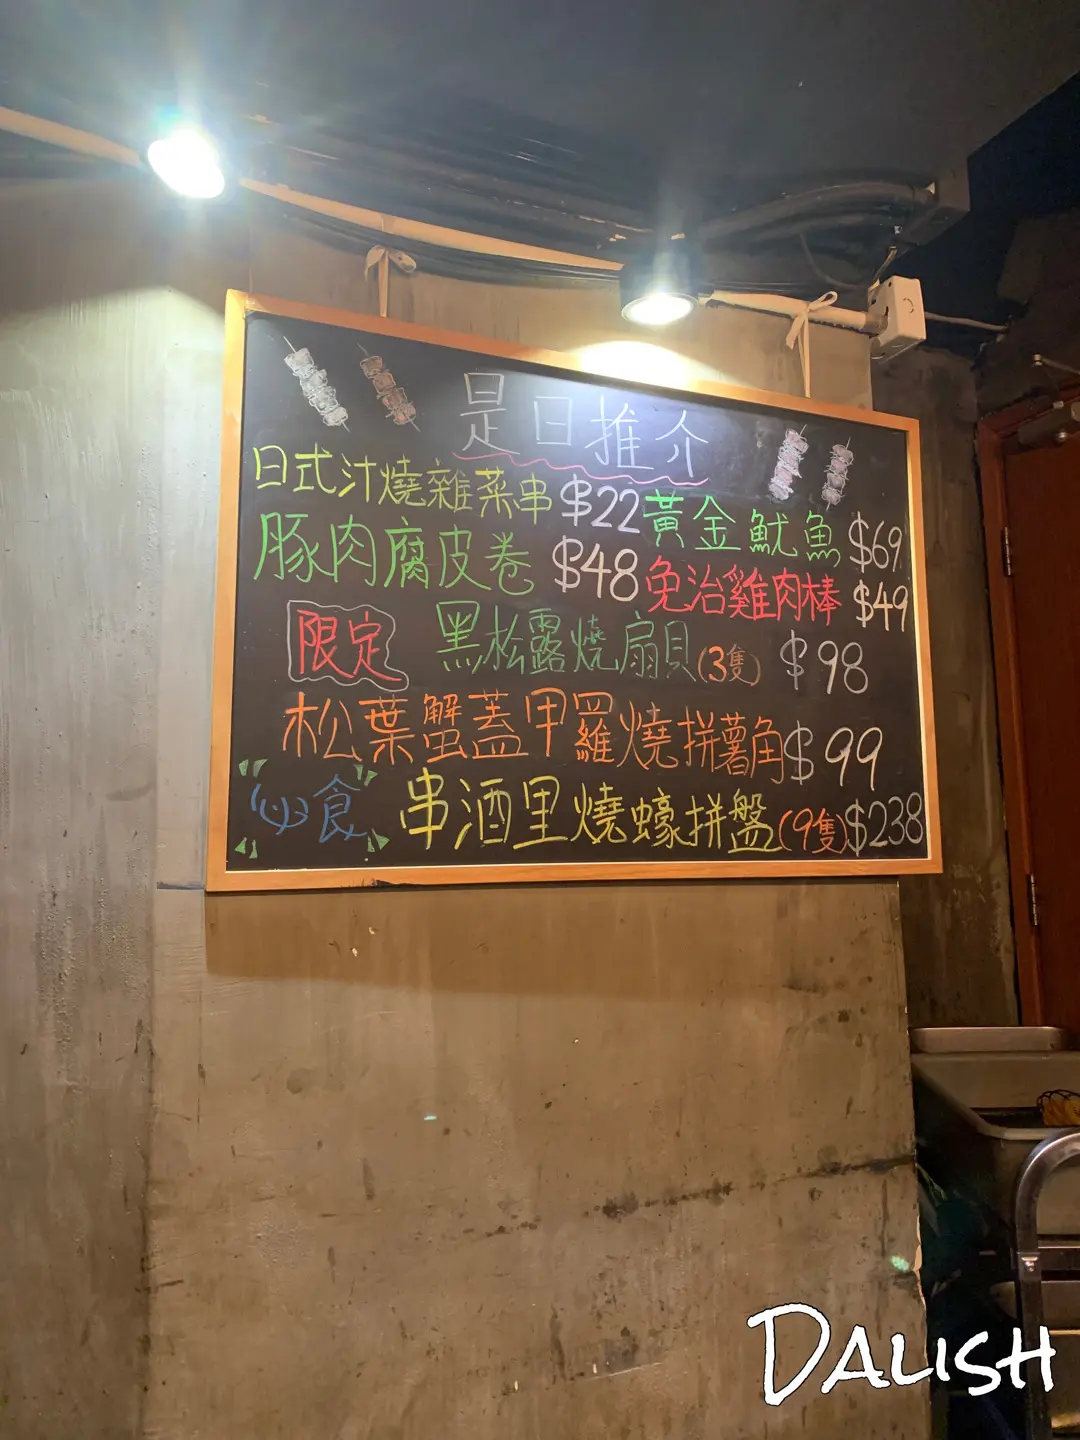 是日推介
日式汁燒雜菜串 $22 黃金魷魚 $69
豚肉腐皮卷 $48 免治雞肉棒 $49
限定 黑松露燒扇貝(3隻) $98
松葉蟹蓋甲羅燒拼薯角 $99
必食 串酒里燒蠔拼盤(9隻) $238
DALISH